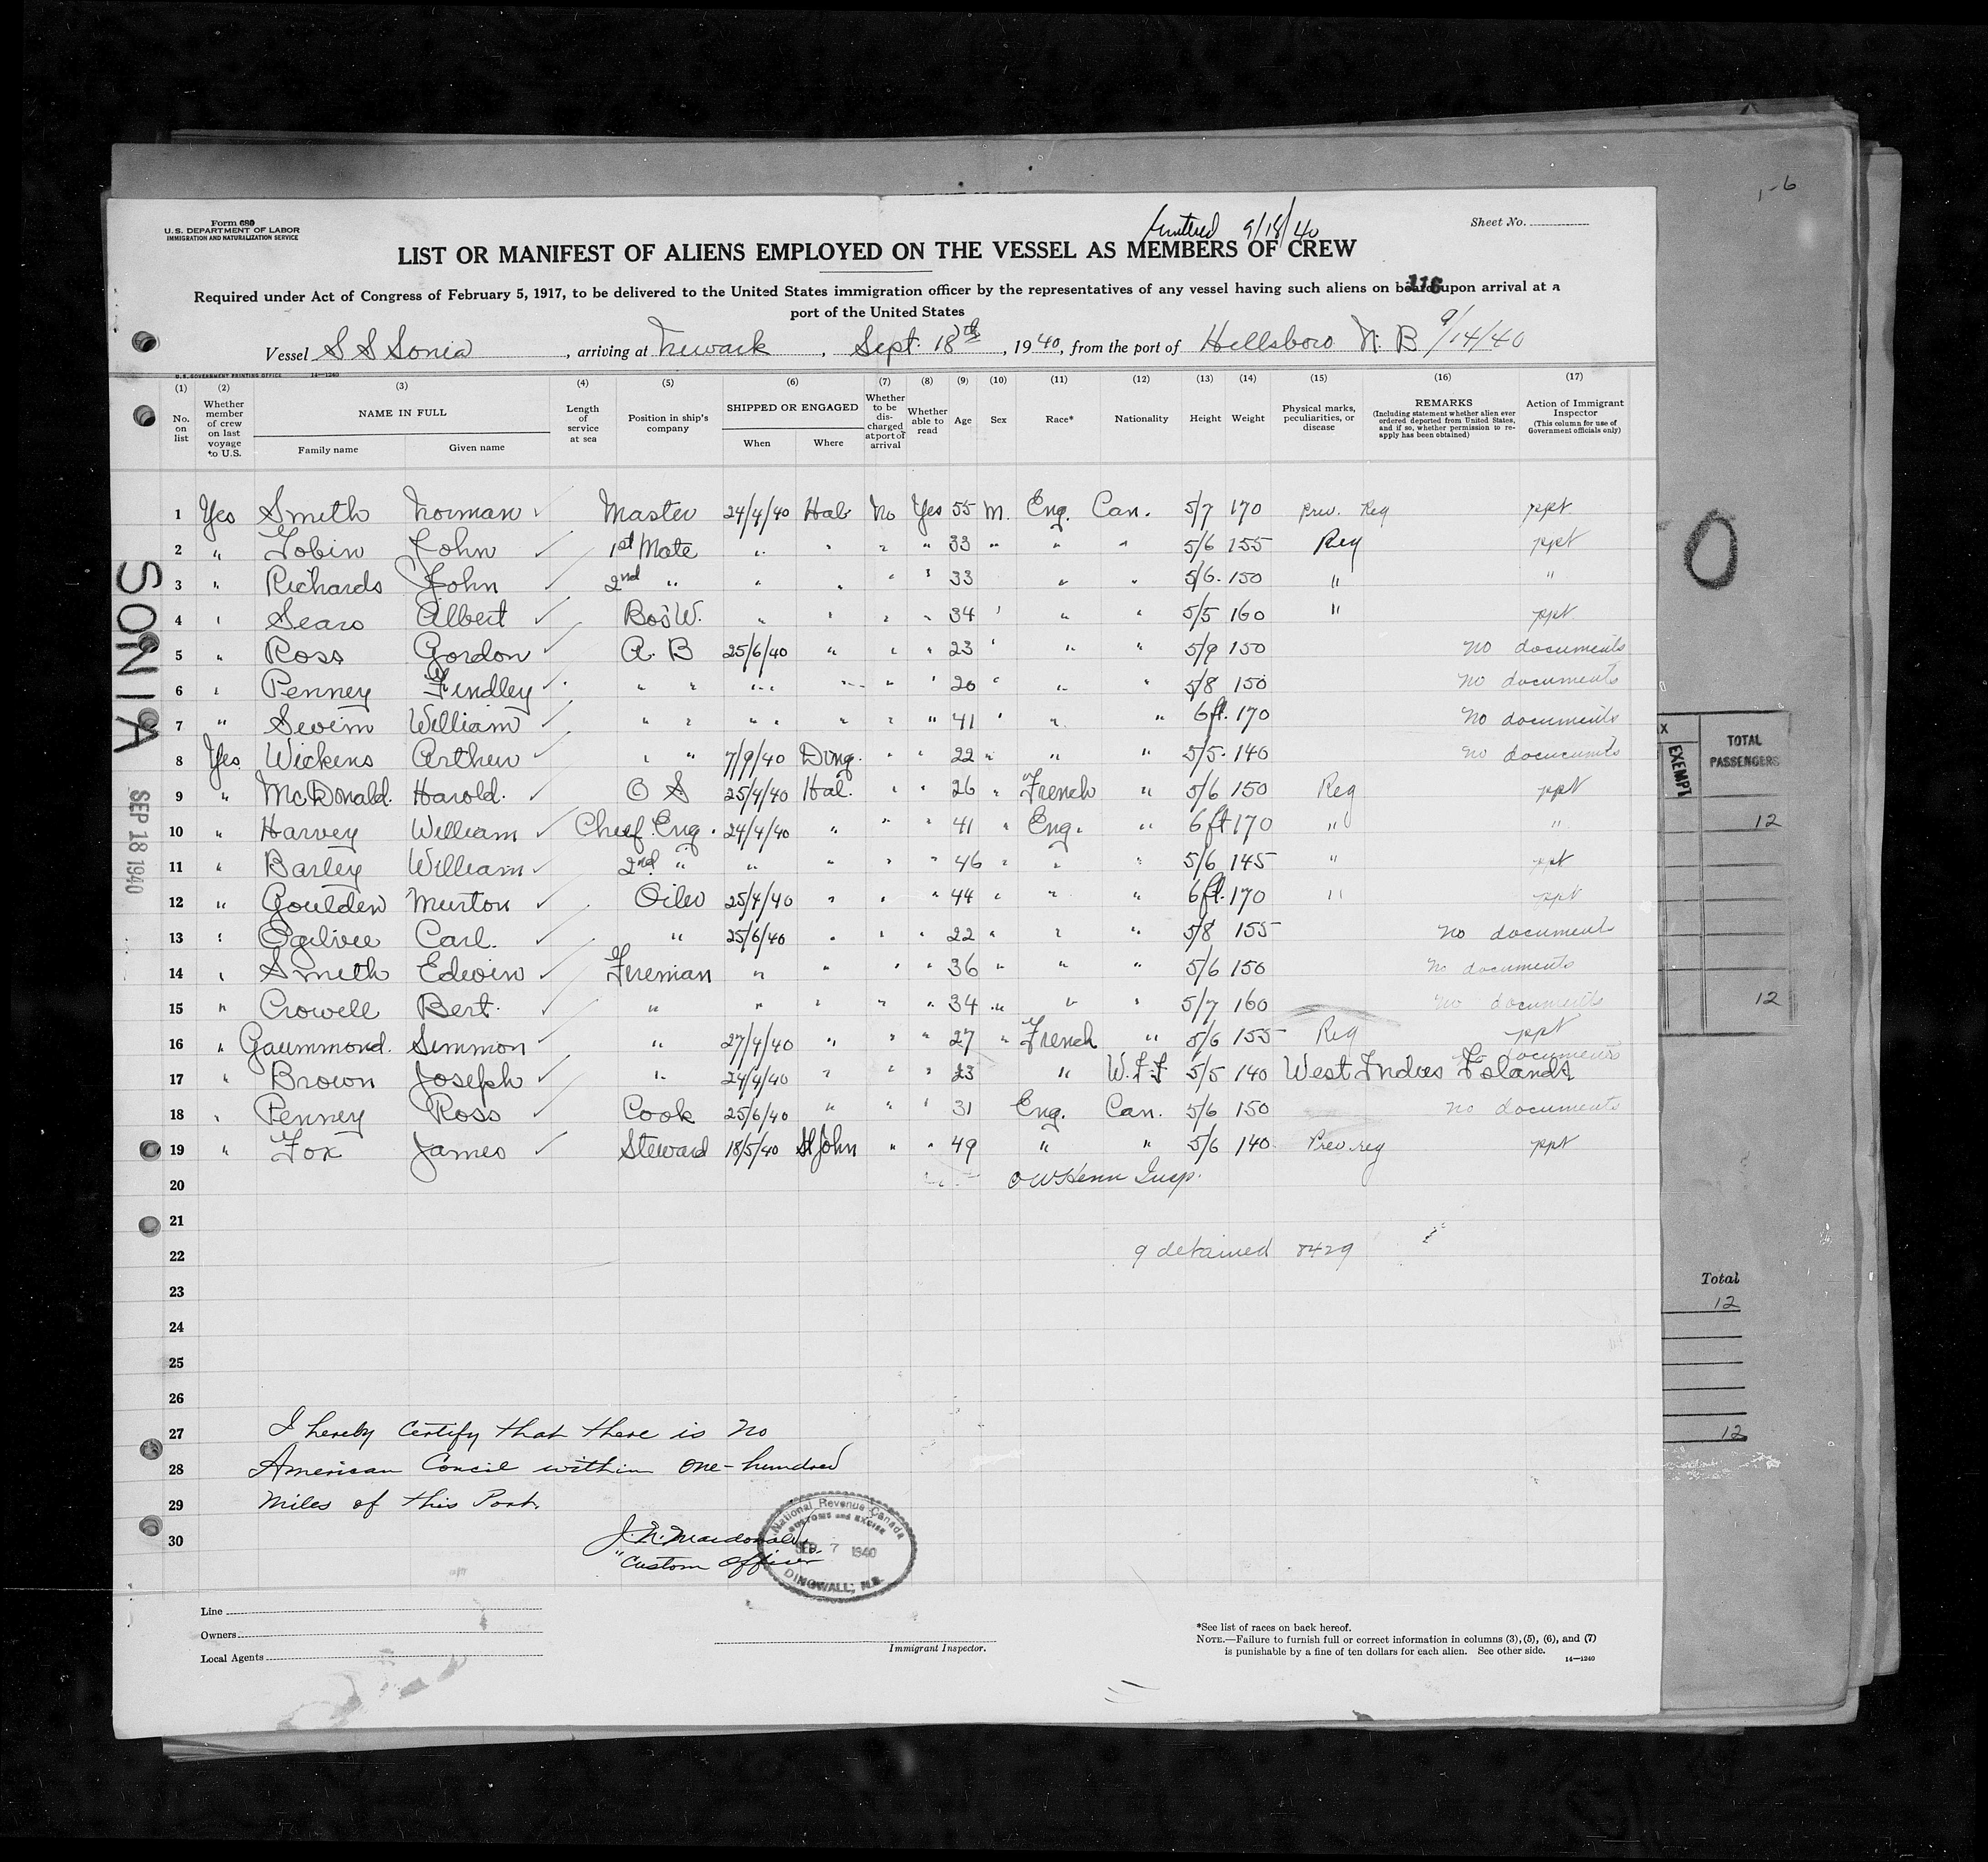 1-6
Form 680
U.S. DEPARTMENT OF LABOR
IMMIGRATION AND NATURALIZATION SERVICE
9/18/40
Sheet No.
LIST OR MANIFEST OF ALIENS EMPLOYED ON THE VESSEL AS MEMBERS OF CREW
116
Required under Act of Congress of February 5, 1917, to be delivered to the United States immigration officer by the representatives of any vessel having such aliens on board upon arrival at a
port of the United States
Vessel S S Sonia, arriving at Newark, Sept. 18th, 1940, from the port of Hillsboro N. B. 9/14/40
U.S. GOVERNMENT PRINTING OFFICE 14—1240
(1) (2) (3) (4) (5) (6) (7) (8) (9) (10) (11) (12) (13) (14) (15) (16) (17)
No. on list
Whether member of crew on last voyage to U.S.
NAME IN FULL
Family name Given name
Length of service at sea
Position in ship's company
SHIPPED OR ENGAGED
When Where
Whether to be discharged at port of arrival
Whether able to read
Age
Sex
Race*
Nationality
Height
Weight
Physical marks, peculiarities, or disease
REMARKS
(Including statement whether alien ever ordered deported from United States, and if so, whether permission to reapply has been obtained)
Action of Immigrant Inspector
(This column for use of Government officials only)
1 Yes Smith Norman Master 24/4/40 Hal No Yes 55 M. Eng. Can. 5/7 170 Prev. Reg ppt
2 " Tobin John 1st Mate " " " " 33 " " " 5/6 155 Reg ppt
3 " Richards John 2nd " " " " " 33 " " 5/6 150 " "
4 " Sears Albert Bos'W. " " " " 34 " " " 5/5 160 " ppt
5 " Ross Gordon A. B 25/6/40 " " " 23 " " " 5/9 150 No documents
6 " Penney Findley " " " " " " 20 " " " 5/8 150 No documents
7 " Swim William " " " " " " 41 " " " 6ft. 170 No documents
8 Yes Wickens Arthur " " 7/9/40 Ding. " " 22 " " " 5/5 140 No documents
9 " McDonald. Harold. O S 25/4/40 Hal. " " 26 " French " 5/6 150 Reg ppt
10 " Harvey William Chief Eng. 24/4/40 " " " 41 " Eng. " 6ft 170 " "
11 " Barley William 2nd " " " " " 46 " " " 5/6 145 " ppt
12 " Goulden Murton Oiler 25/4/40 " " " 44 " " " 6ft. 170 " ppt
13 " Ogilvie Carl. " 25/6/40 " " " 22 " " " 5/8 155 No document
14 " Smith Edwin Fireman " " " " 36 " " " 5/6 150 No documents
15 " Crowell Bert. " " " " " 34 " " " 5/7 160 No documents
16 " Gaummond. Simmon " 27/4/40 " " " 27 " French " 5/6 155 Reg ppt
17 " Brown Joseph " 24/4/40 " " " 23 " W.I.I 5/5 140 West Indies Islands No documents
18 " Penney Ross Cook 25/6/40 " " " 31 Eng. Can. 5/6 150 No documents
19 " Fox James Steward 18/5/40 St John " " 49 " " 5/6 140 Prev. reg ppt
20 O W Henn Insp.
21
22 9 detained 8429
23
24
25
26
27 I hereby Certify that there is no
28 American Concil within One-hundred
29 Miles of this Port.
30 J. N. Macdonald
"Custom Officer
National Revenue Canada
CUSTOMS and EXCISE
SEP 7 1940
DINGWALL, N.S.
Line
Owners
Local Agents
Immigrant Inspector.
*See list of races on back hereof.
NOTE.—Failure to furnish full or correct information in columns (3), (5), (6), and (7)
is punishable by a fine of ten dollars for each alien. See other side.
14—1240
SONIA
SEP 18 1940
0
EXEMPT
TOTAL
PASSENGERS
12
12
Total
12
12